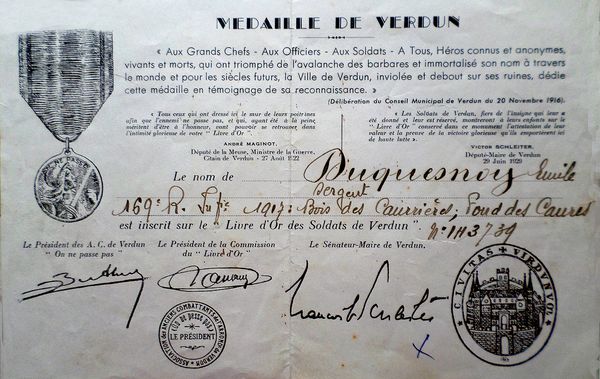 MEDAILLE DE VERDUN
« Aux Grands Chefs - Aux Officiers - Aux Soldats - A Tous, Héros connus et anonymes,
vivants et morts, qui ont triomphé de l'avalanche des barbares et immortalisé son nom à travers
le monde et pour les siècles futurs, la Ville de Verdun, inviolée et debout sur ses ruines, dédie
cette médaille en témoignage de sa reconnaissance. »
(Délibération du Conseil Municipal de Verdun du 20 Novembre 1916).
« Tous ceux qui ont dressé ici le mur de leurs poitrines
afin que l'ennemi ne passe pas, et qui, ayant été à la peine
méritent d'être à l'honneur, vont pouvoir se retrouver dans
l'intimité glorieuse de votre " Livre d'Or "
ANDRÉ MAGINOT,
Député de la Meuse, Ministre de la Guerre,
Citain de Verdun - 27 Août 1922
« Les Soldats de Verdun, fiers de l'insigne qui leur a
été donné et de leur
" Livre d'Or " conservé dans ce monument l'attestation de leur
valeur et la preuve de la victoire glorieuse qu'ils emportèrent ici
de haute lutte ».
VICTOR SCHLEITER,
Député-Maire de Verdun
29 Juin 1929
Le nom de Duquesnoy Emile
Sergent
169e R. Infie 1917: Bois des Caurrières, Fond des Caures
est inscrit sur le " Livre d'Or des Soldats de Verdun " N° 113739
Le Président des A. C. de Verdun
" On ne passe pas "
Le Président de la Commission
du " Livre d'Or "
Le Sénateur-Maire de Verdun.
ON NE PASSE PAS
ASSOCIATION des ANCIENS COMBATTANTS de VERDUN
On ne passe pas
LE PRÉSIDENT
CIVITAS VIRDVNVM